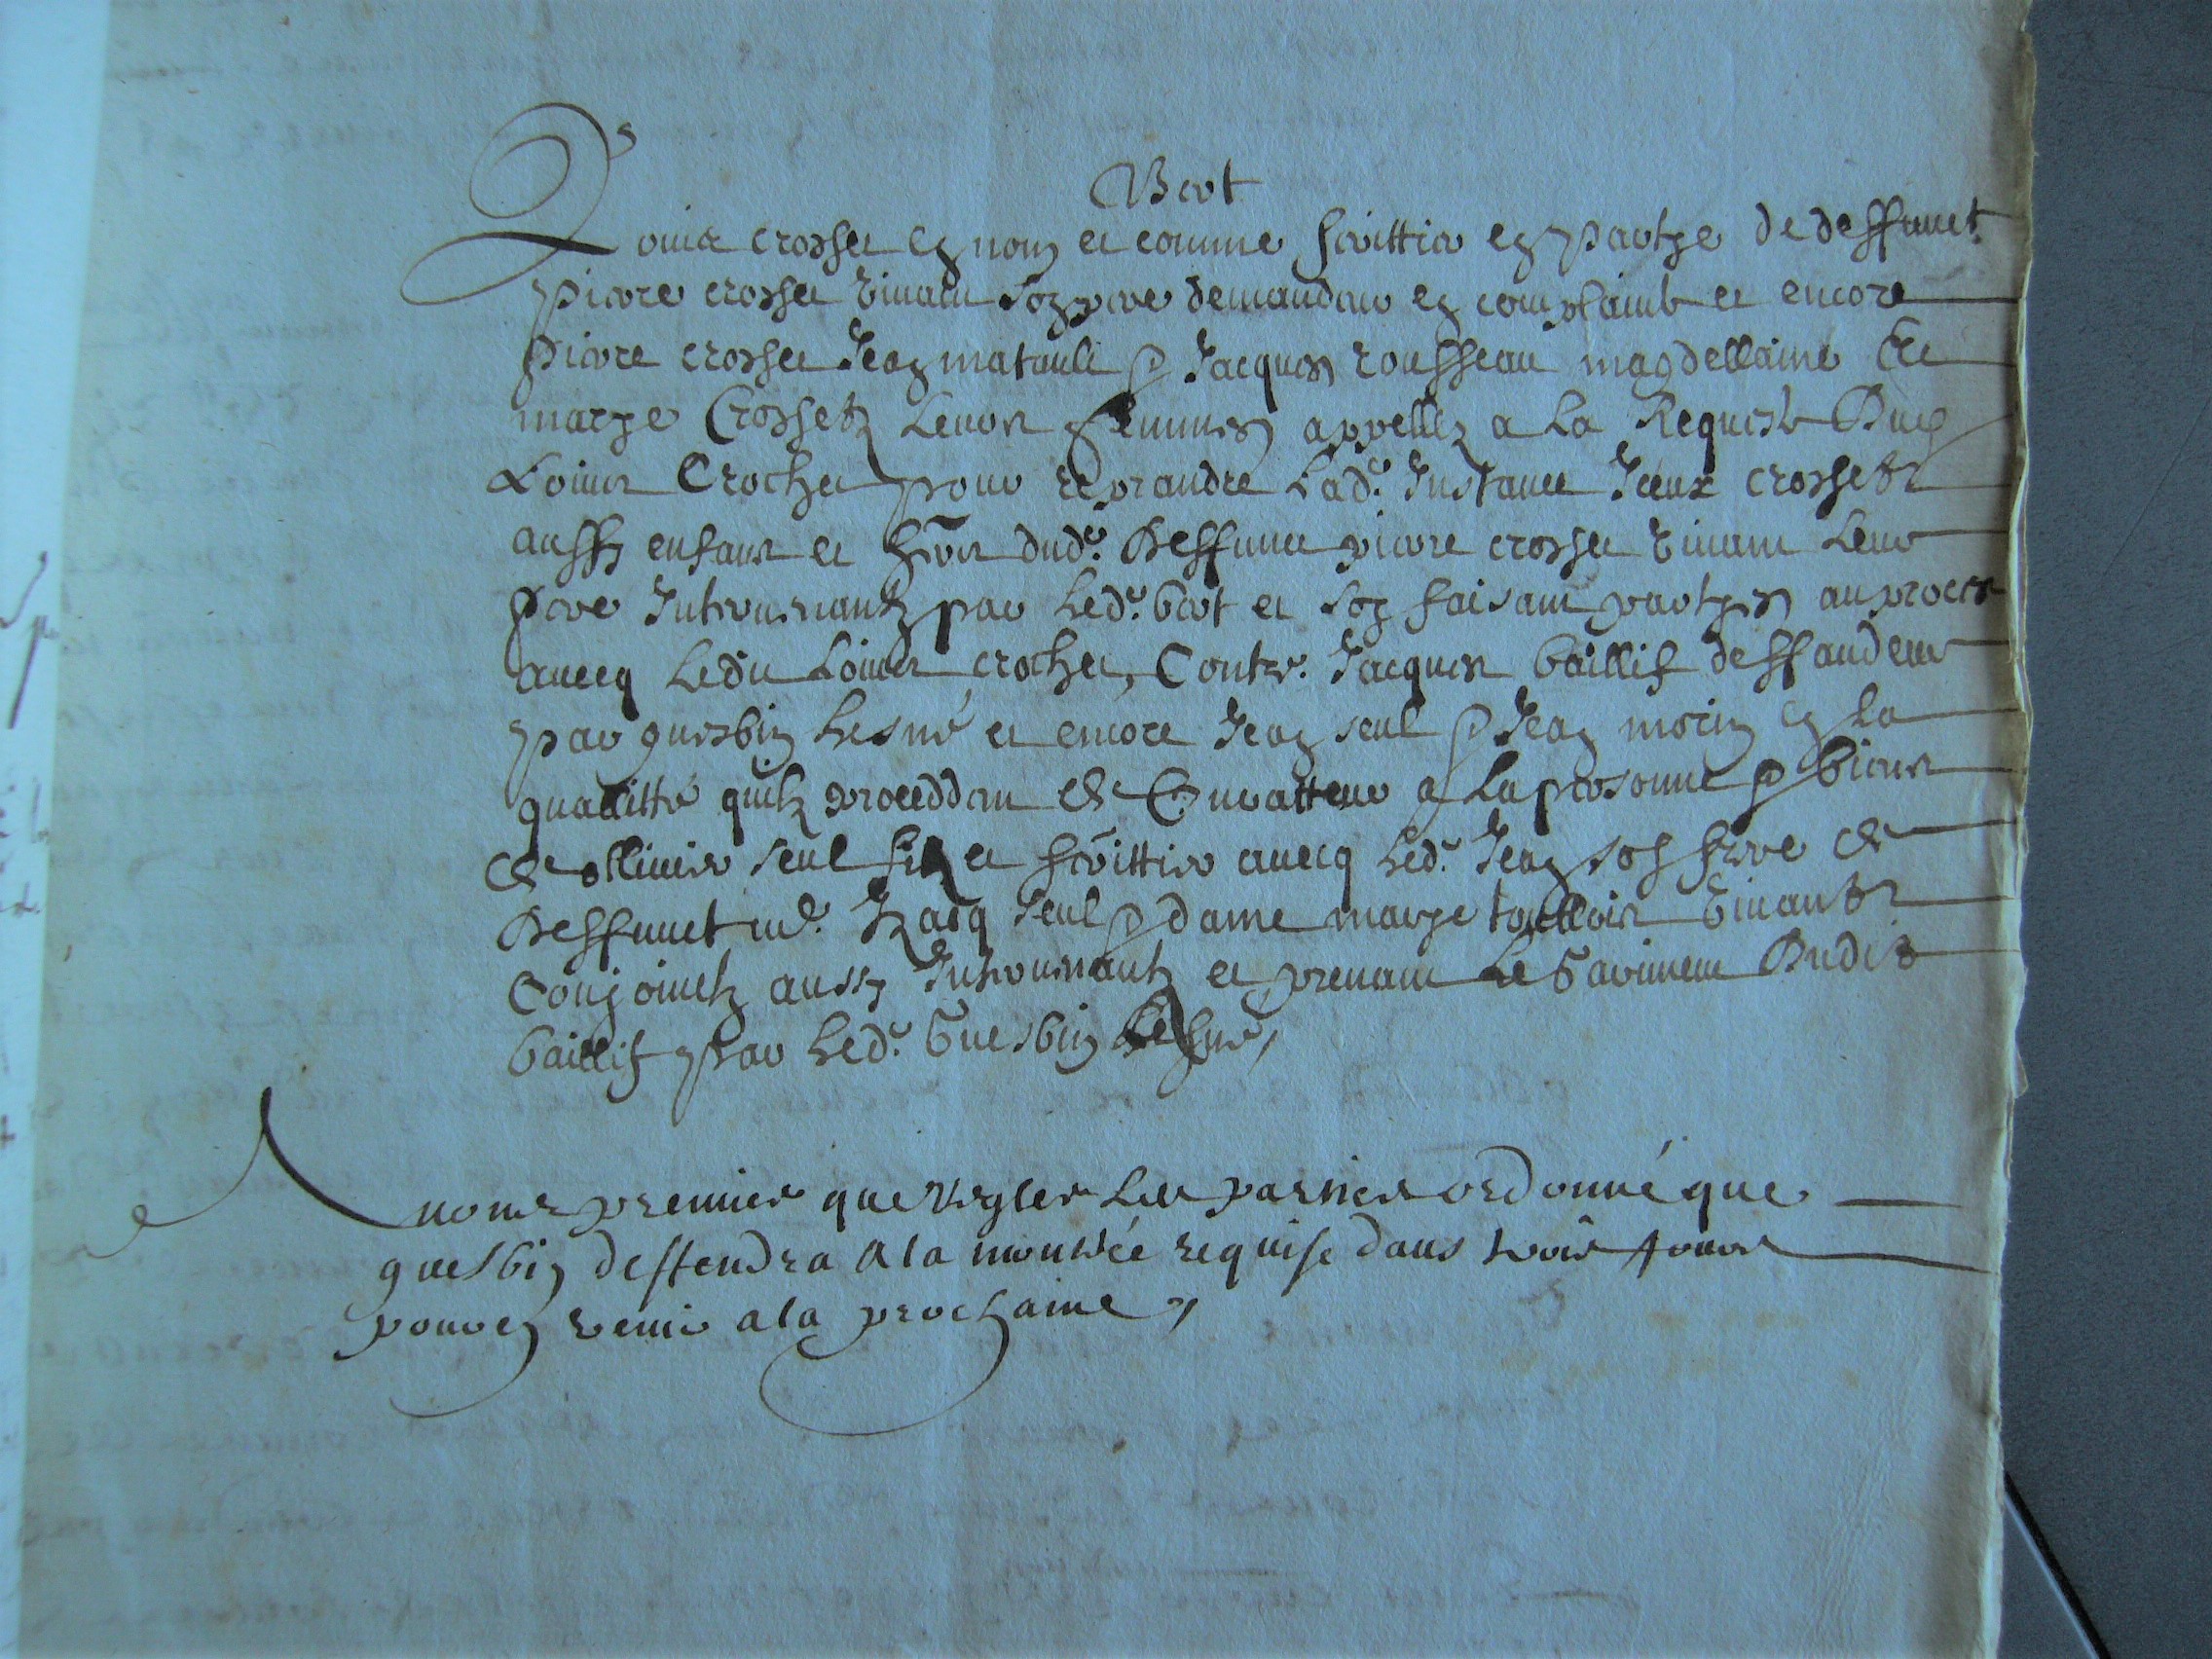 Bert
Louis crosset en nom et comme herittier en partye de deffunct
pierre crosset vivant son pere demandeur en complaintte et encore
pierre crosset Jean matault & Jacques rousseau magdellaine Et
marye Crossetz Leurs femmes appellez a La Requeste Dud
Louis Crochet pour reprandre Lade. Instance Iceux crossetz
aussy enfans et hers dude. Deffunct pierre crosset vivant Leur
pere Intervenantz par Lede. bert et soy faisant partyes au proces
avecq Ledit Louis crochet, Contre. Jacques baillif deffandeur
par guesbin Lesné et encore Jean seul & Jean morin en La
quallitté quilz proceddent Et Curatteur a La personne & biens
de ollivier seul filz et herittier avecq Lede. Jean son frere de
Deffunct me. seul & dame marye Vivantz
Conjoinctz aussy Intervenantz et prenant Le Garimen Dudit
baillif par Lede. Guesbin Lesné,
nous premier que regler Les parties ordonné que
guesbin deffendra a la monstrée requise dans trois jours
pour en venir a la prochaine,